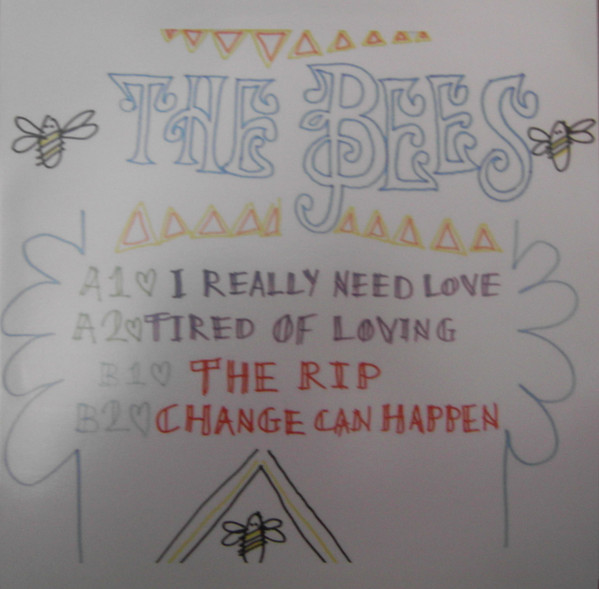 THE BEES
A1♡ I REALLY NEED LOVE
A2♡TIRED OF LOVING
B1♡ THE RIP
B2♡CHANGE CAN HAPPEN